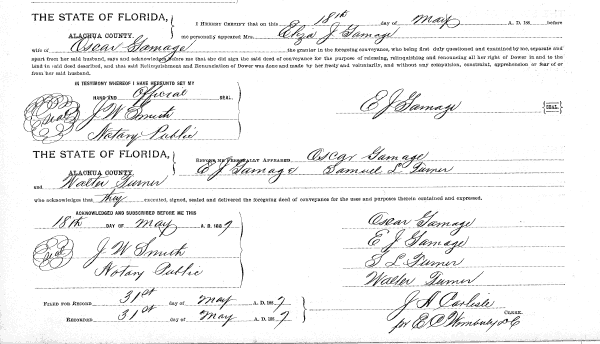 THE STATE OF FLORIDA,
ALACHUA COUNTY.
I HEREBY CERTIFY that on this 18th day of May A. D. 188 , before
me personally appeared Mrs. Eliza J Gamage
wife of Oscar Gamage the grantor in the foregoing conveyance, who being first duly questioned and examined by me, separate and
apart from her said husband, says and acknowledges before me that she did sign the said deed of conveyance for the purpose of releasing, relinquishing and renouncing all her right of Dower in and to the
land in said deed described, and that said Relinquishment and Renunciation of Dower was done and made by her freely and voluntarily, and without any compulsion, constraint, apprehension or fear of or
from her said husband.
IN TESTIMONY WHEREOF I HAVE HEREUNTO SET MY
HAND AND Official SEAL.
Seal
J W Smith
Notary Public
E J Gamage SEAL.
THE STATE OF FLORIDA,
ALACHUA COUNTY.
BEFORE ME PERSONALLY APPEARED Oscar Gamage
E J Gamage Samuel L Turner
and Walter Turner
who acknowledges that they executed, signed, sealed and delivered the foregoing deed of conveyance for the uses and purposes therein contained and expressed.
ACKNOWLEDGED AND SUBSCRIBED BEFORE ME THIS
18th DAY OF May A. D. 1887
Seal
J W Smith
Notary Public
Oscar Gamage
E J Gamage
S L Turner
Walter Turner
FILED FOR RECORD 31st day of May A. D. 1887
RECORDED 31st day of May A. D. 1887
J A Carlisle
CLERK.
for E C